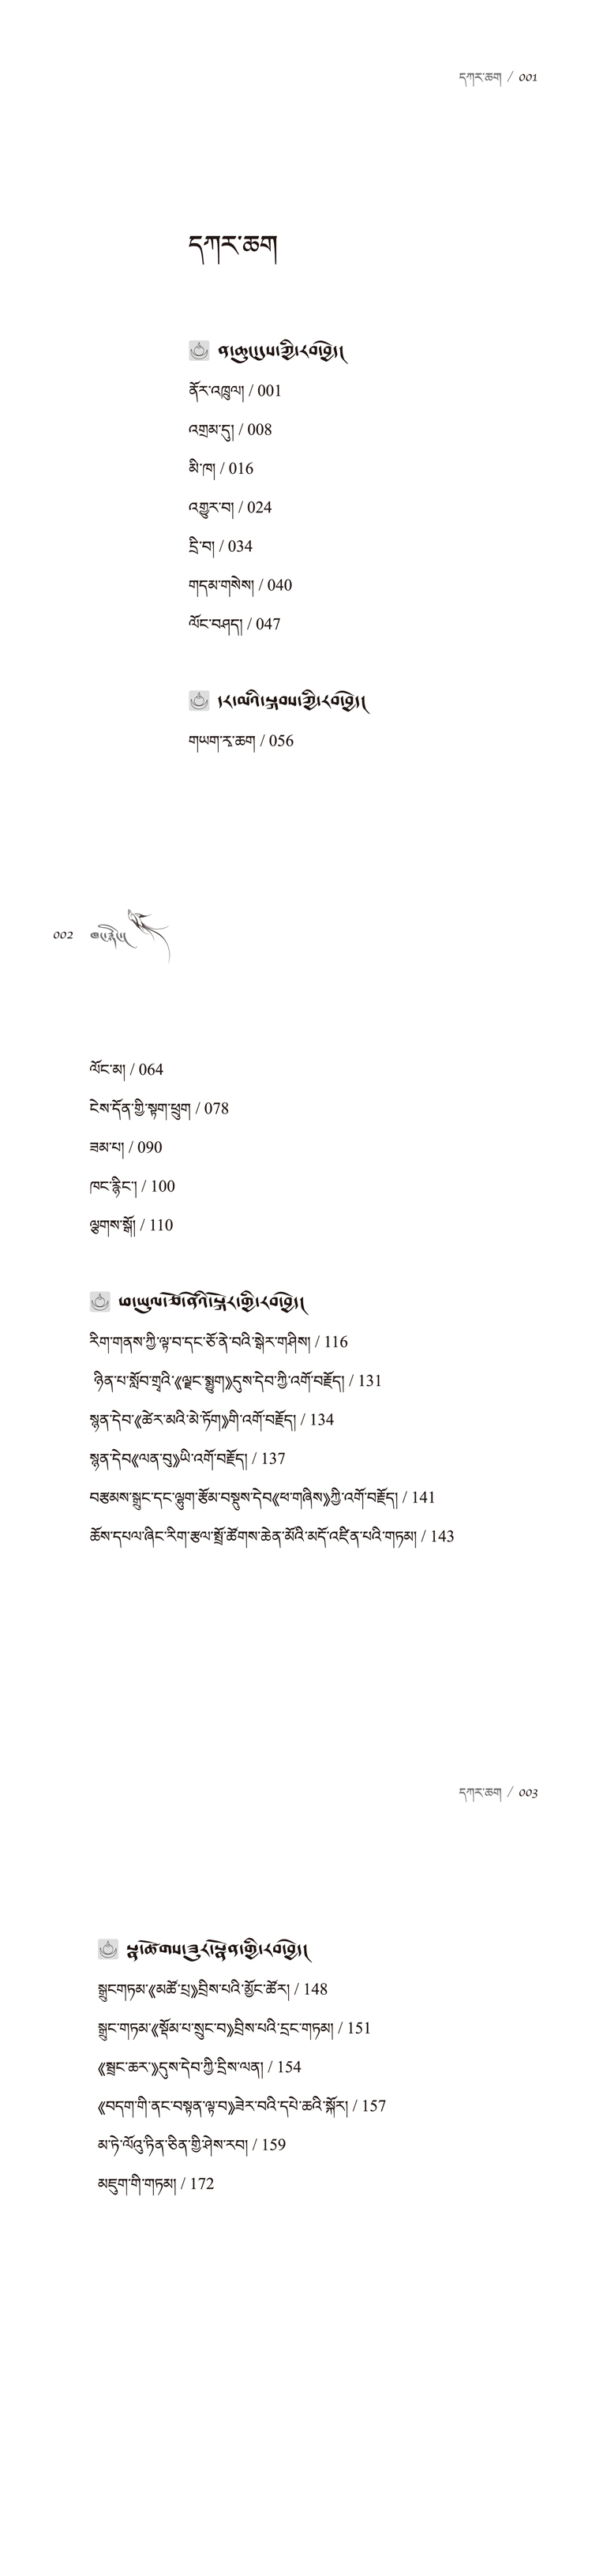 དཀར་ཆག / 001
དཀར་ཆག
ནོར་འཁྲུལ། / 001
འགྲམ་དུ། / 008
མི་ཁ། / 016
འགྱུར་བ། / 024
དྲི་བ། / 034
གདམ་གསེས། / 040
ལོང་བཤད། / 047
གཡག་རྭ་ཆག / 056
002
ལོང་མ། / 064
ངེས་དོན་གྱི་སྟག་ཕྲུག / 078
ཟམ་པ། / 090
ཁང་རྙིང་། / 100
ལྕགས་སྒོ། / 110
རིག་གནས་ཀྱི་ལྟ་བ་དང་ཅོ་ནེ་བའི་སྒེར་གཤིས། / 116
ཉིན་པ་སློབ་གྲྭའི་《ལྗང་སྨྱུག》དུས་དེབ་ཀྱི་འགོ་བརྗོད། / 131
སྙན་དེབ་《ཚེར་མའི་མེ་ཏོག》གི་འགོ་བརྗོད། / 134
སྙན་དེབ《ལན་བུ》ཡི་འགོ་བརྗོད། / 137
བརྩམས་སྒྲུང་དང་ལྷུག་རྩོམ་བསྡུས་དེབ《ཕ་གཞིས》ཀྱི་འགོ་བརྗོད། / 141
ཆོས་དཔལ་ཞིང་རིག་རྩལ་སྤྲོ་ཚོགས་ཆེན་མོའི་མདོ་འཛིན་པའི་གཏམ། / 143
དཀར་ཆག / 003
སྒྲུང་གཏམ་《མཚོ་པྲ》བྲིས་པའི་མྱོང་ཚོར། / 148
སྒྲུང་གཏམ་《སྡོམ་པ་སྲུང་བ》བྲིས་པའི་དྲང་གཏམ། / 151
《སྦྲང་ཆར་》དུས་དེབ་ཀྱི་དྲིས་ལན། / 154
《བདག་གི་ནང་བསྟན་ལྟ་བ》ཟེར་བའི་དཔེ་ཆའི་སྐོར། / 157
མ་ཏེ་ལོའུ་ཏིན་ཅིན་གྱི་ཤེས་རབ། / 159
མཇུག་གི་གཏམ། / 172